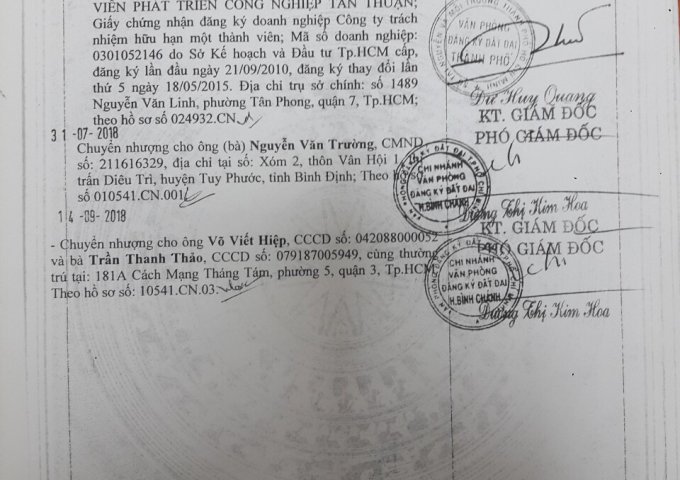 VIÊN PHÁT TRIỂN CÔNG NGHIỆP TÂN THUẬN;
Giấy chứng nhận đăng ký doanh nghiệp Công ty trách
nhiệm hữu hạn một thành viên; Mã số doanh nghiệp:
0301052146 do Sở Kế hoạch và Đầu tư Tp.HCM cấp,
đăng ký lần đầu ngày 21/09/2010, đăng ký thay đổi lần
thứ 5 ngày 18/05/2015. Địa chỉ trụ sở chính: số 1489
Nguyễn Văn Linh, phường Tân Phong, quận 7, Tp.HCM;
theo hồ sơ số 024932.CN.
VĂN PHÒNG
ĐĂNG KÝ ĐẤT ĐAI
THÀNH PHỐ
Dư Huy Quang
KT. GIÁM ĐỐC
PHÓ GIÁM ĐỐC
31-07-2018
Chuyển nhượng cho ông (bà) Nguyễn Văn Trường, CMND
số: 211616329, địa chỉ tại: Xóm 2, thôn Vân Hội 1
trấn Diêu Trì, huyện Tuy Phước, tỉnh Bình Định; Theo
số 010541.CN.001
CHI NHÁNH
VĂN PHÒNG
ĐĂNG KÝ ĐẤT ĐAI
H.BÌNH CHÁNH
Dương Thị Kim Hoa
KT. GIÁM ĐỐC
PHÓ GIÁM ĐỐC
14-09-2018
- Chuyển nhượng cho ông Võ Viết Hiệp, CCCD số: 042088000052
và bà Trần Thanh Thảo, CCCD số: 079187005949, cùng thường
trú tại: 181A Cách Mạng Tháng Tám, phường 5, quận 3, Tp.HCM
Theo hồ sơ số: 10541.CN.03.
VĂN PHÒNG ĐĂNG KÝ ĐẤT ĐAI
CHI NHÁNH
VĂN PHÒNG
ĐĂNG KÝ ĐẤT ĐAI
H.BÌNH CHÁNH
Dương Thị Kim Hoa